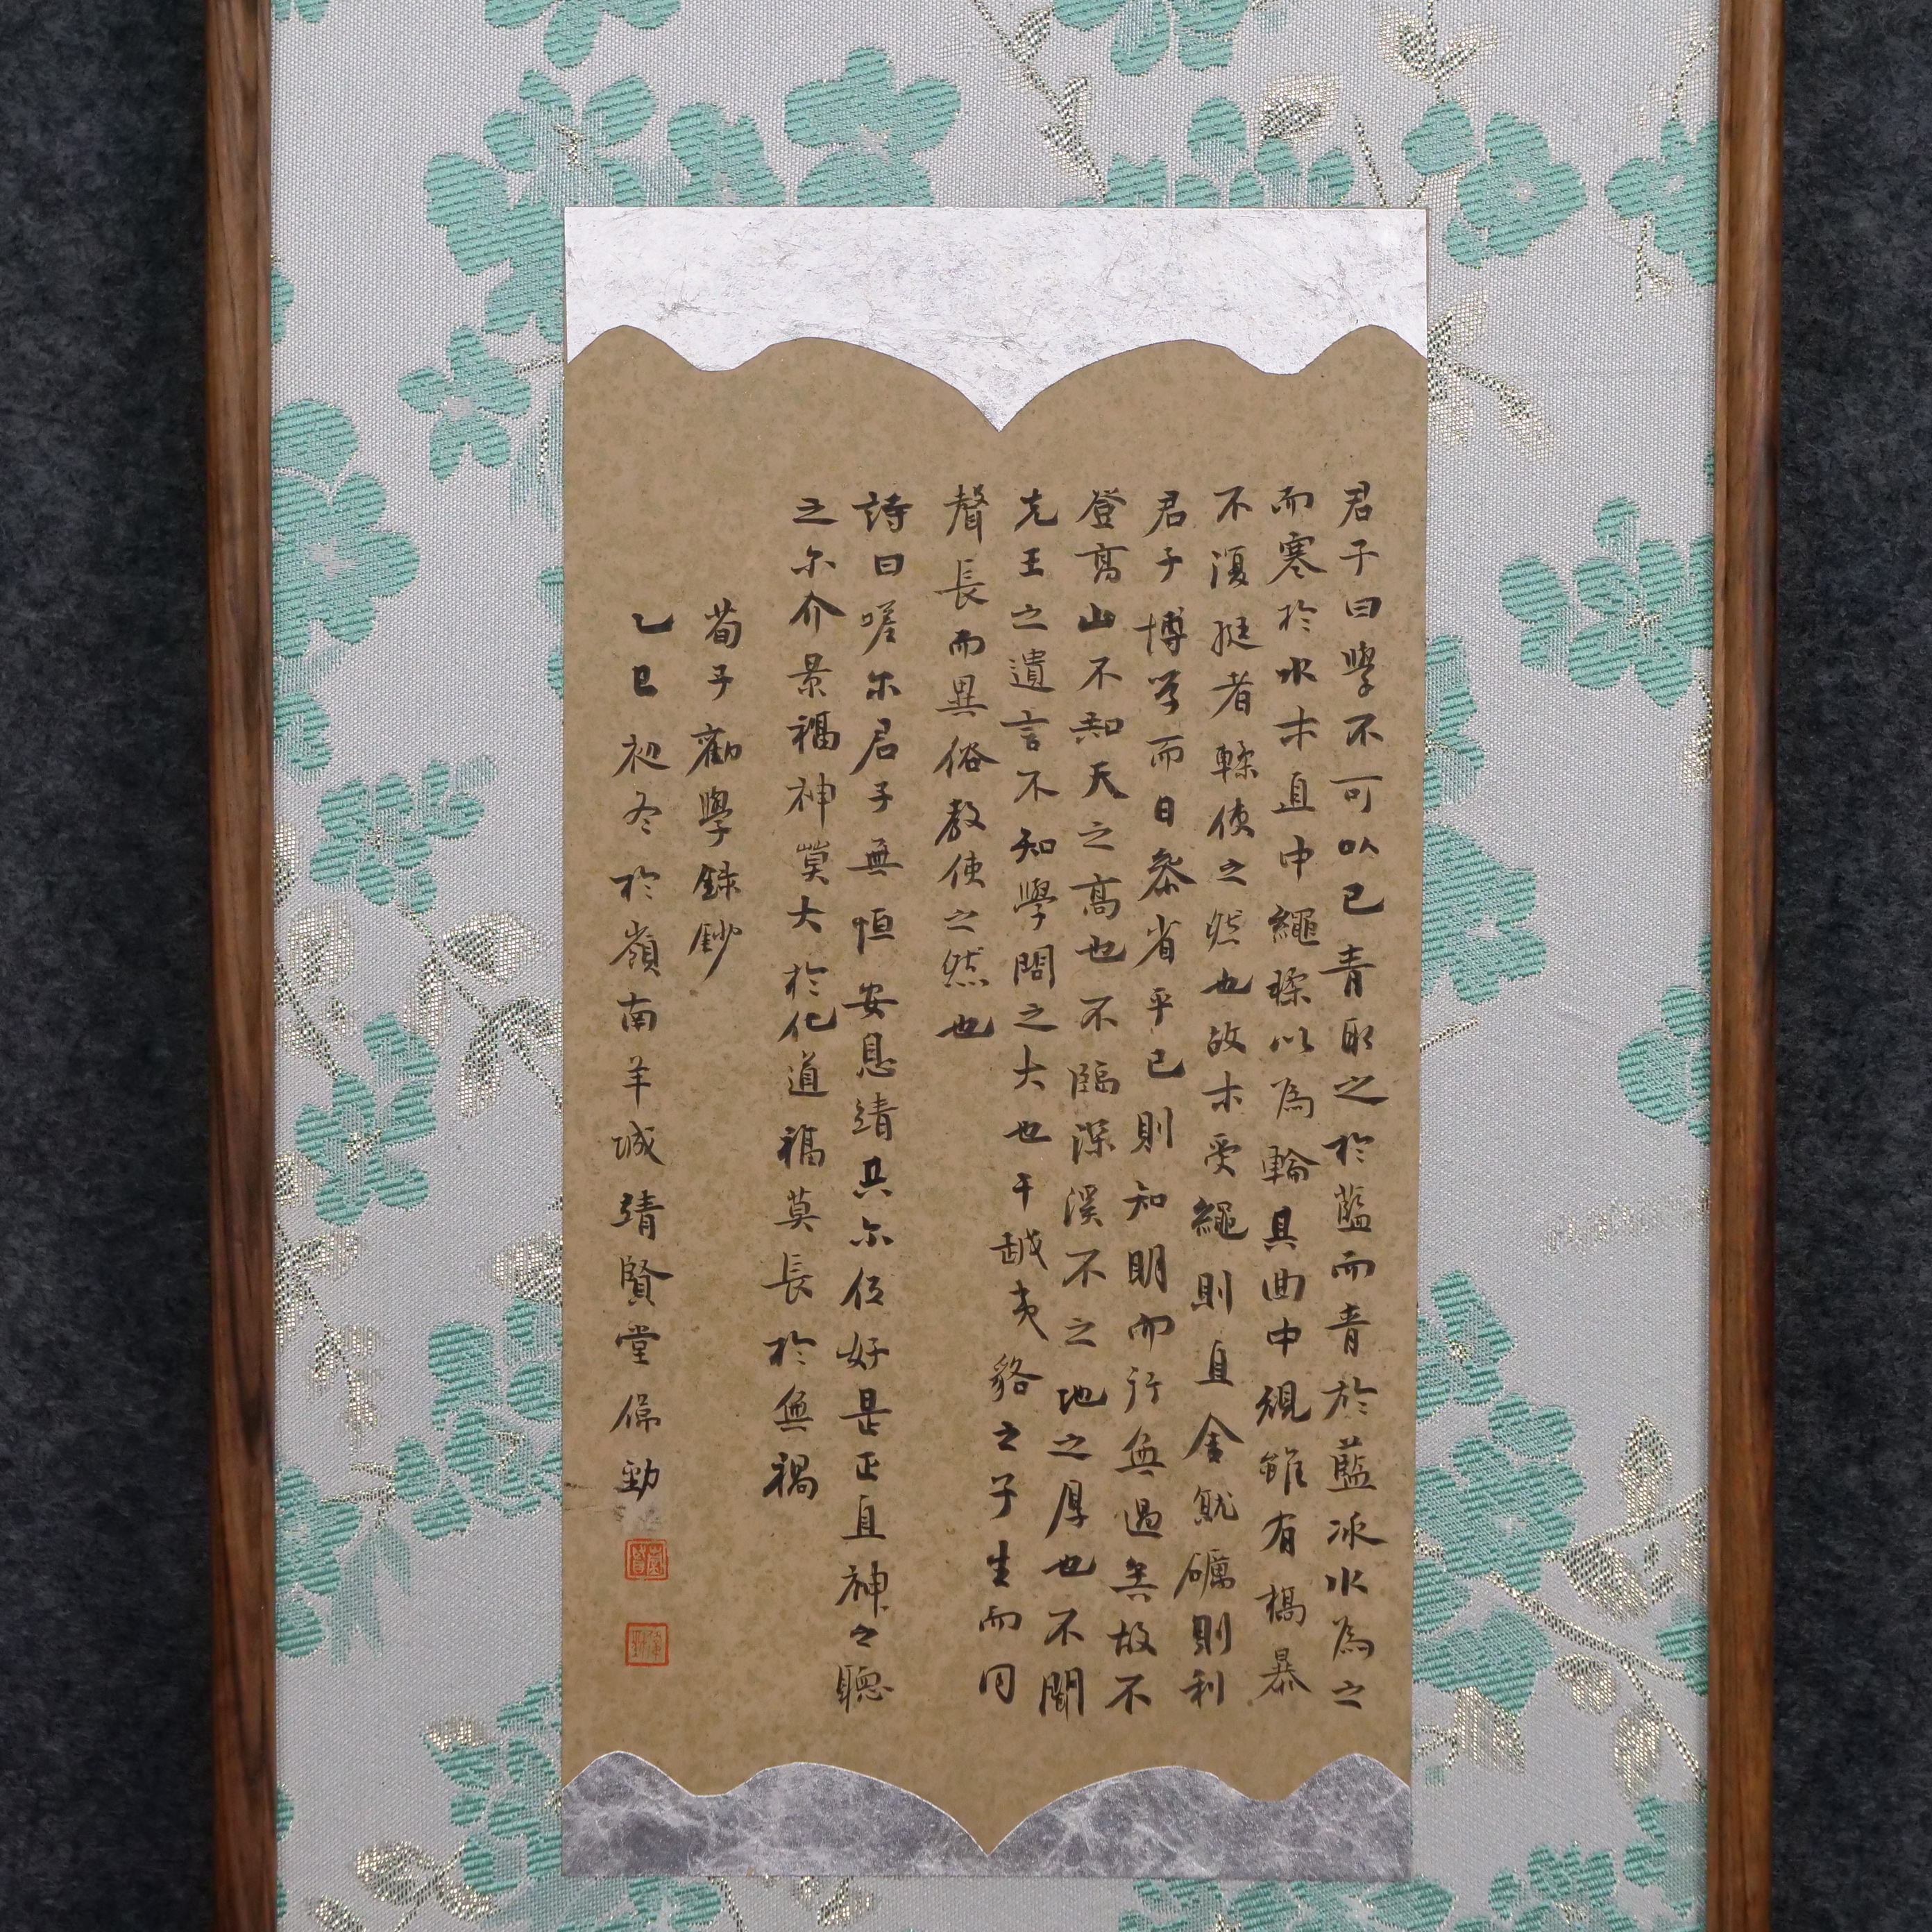 君子曰學不可以已青取之於藍而青於藍冰水為之
而寒於水木直中繩輮以為輪其曲中規雖有槁暴
不復挺者輮使之然也故木受繩則直金就礪則利
君子博学而日參省乎己則知明而行無過矣故不
登高山不知天之高也不臨深溪不之地之厚也不聞
先王之遺言不知學問之大也干越夷貉之子生而同
聲長而異俗教使之然也
詩曰嗟尔君子無恒安息靖共尔位好是正直神之聽
之尔介景福神莫大於化道福莫長於無禍
荀子勸學錄鈔
乙巳初冬於嶺南羊城靖賢堂保勁